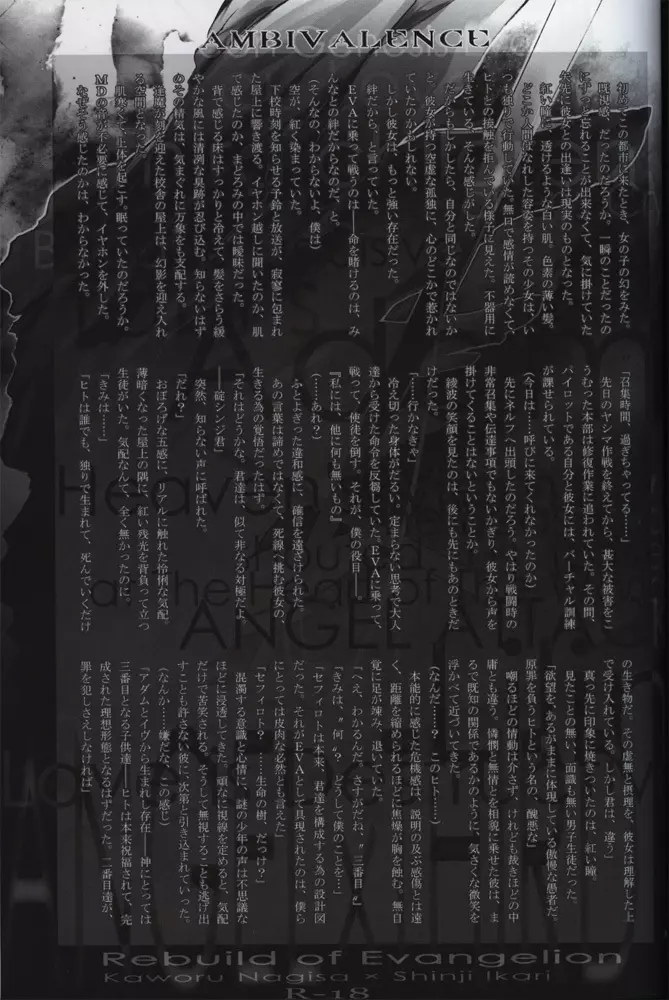 AMBIVALENCE
初めてこの都市に来たとき、女の子の幻をみた。
既視感、だったのだろうか。一瞬のことだったの
にずっと忘れることが出来なくて、気に掛けていた
矢先に彼女との出逢いは現実のものとなった。
紅い瞳、透けるような白い肌。色素の薄い髪。
どこか人間ばなれした容姿を持つその少女は、い
つも独りで行動していた。無口で感情が読めなくて、
ヒトとの接触を拒んでいる様に見えた。不器用に
生きている、そんな感じがした。
だからもしかしたら、自分と同じなのではないか
と。彼女が持つ空虚な孤独に、心のどこかで惹かれ
ていたのかもしれない。
しかし彼女は、もっと強い存在だった。
絆だから、と言っていた。
EVAに乗って戦うのは――命を賭けるのは、み
んなとの絆だからなのだ、と。
(そんなの、わからないよ、僕は)
空が、紅く染まっていた。
下校時刻を知らせる予鈴と放送が、寂寥に包まれ
た屋上に響き渡る。イヤホン越しに聞いたのか、肌
で感じたのか、まどろみの中では曖昧だった。
背で感じる床はすっかりと冷えて、髪をさらう緩
やかな風には清冽な臭跡が忍び込む。知らないはず
のその精気は、気まぐれに万象をも支配する。
逢魔が刻を迎えた校舎の屋上は、幻影を迎え入れ
る空間となった。
肌寒くて上体を起こす。眠っていたのだろうか。
MDの音が不必要に感じて、イヤホンを外した。
なぜそう感じたのかは、わからなかった。
「召集時間、過ぎちゃってる……」
先日のヤシマ作戦を終えてから、甚大な被害をこ
うむった本部は修復作業に追われていた。その間、
パイロットである自分と彼女には、バーチャル訓練
が課せられている。
(今日は……呼びに来てくれなかったのか)
先にネルフへ出頭したのだろう。やはり戦闘時の
非常召集や伝達事項でもないかぎり、彼女から声を
掛けてくることはないということか。
綾波の笑顔を見たのは、後にも先にもあのときだ
けだった。
「……行かなきゃ」
冷え切った身体がだるい。定まらない思考で大人
達から受けた命令を反芻していた。EVAに乗って、
戦って、使徒を倒す。それが、僕の役目――
『私には、他に何も無いもの』
(……あれ?)
ふとよぎった違和感に、確信を遠ざけられた。
あの言葉は諦めではなくて、死線へ挑む彼女の、
生きる為の覚悟だったはず。
「それはどうかな。君達は、似て非なる対極だよ
――碇シンジ君」
突然、知らない声に呼ばれた。
「だれ?」
おぼろげな五感に、リアルに触れた怜悧な気配。
薄暗くなった屋上の隅に、紅い残光を背負って立つ
生徒がいた。気配なんて、全く無かったのに。
「きみは……」
「ヒトは誰でも、独りで生まれて、死んでいくだけ
の生き物だ。その虚無と摂理を、彼女は理解した上
で受け入れている。しかし君は、違う」
真っ先に印象に焼きついたのは、紅い瞳。
見たことの無い、面識も無い男子生徒だった。
「欲望を、あるがままに体現している傲慢な愚者だ。
原罪を負うヒトという名の、醜悪な」
嘲るほどの情動は介さず、けれども裁きほどの中
庸とも違う。憐憫と無情とを相貌に乗せた彼は、ま
るで既知の関係であるかのように、気さくな微笑を
浮かべて近づいてきた。
(なんだ……? このヒト……)
本能的に感じた危機感は、説明の及ぶ感傷とは遠
く、距離を縮められるほどに焦燥が胸を蝕む。無自
覚に足が竦み、退いていた。
「へえ、わかるんだ。さすがだね、〝三番目〟」
「きみは、〝何〟? どうして僕のことを…」
「セフィロトは本来、君達を構成する為の設計図
だった。それがEVAとして具現されたのは、僕ら
にとっては皮肉な必然とも言えた」
「セフィロト? ……生命の樹、だっけ?」
混濁する意識と心情に、謎の少年の声は不思議な
ほどに浸透してきた。頑なに視線を定めると、気配
だけで苦笑される。そうして無視することも逃げ出
すことも許さない彼に、次第と引き込まれていった。
(なんか……嫌だな、この感じ)
「アダムとイヴから生まれし存在――神にとっては
三番目となる子供達。ヒトは本来祝福されて、完
成された理想形態となるはずだった。二番目達が、
罪を犯しさえしなければ」
Rebuild of Evangelion
Kaworu Nagisa × Shinji Ikari
R-18